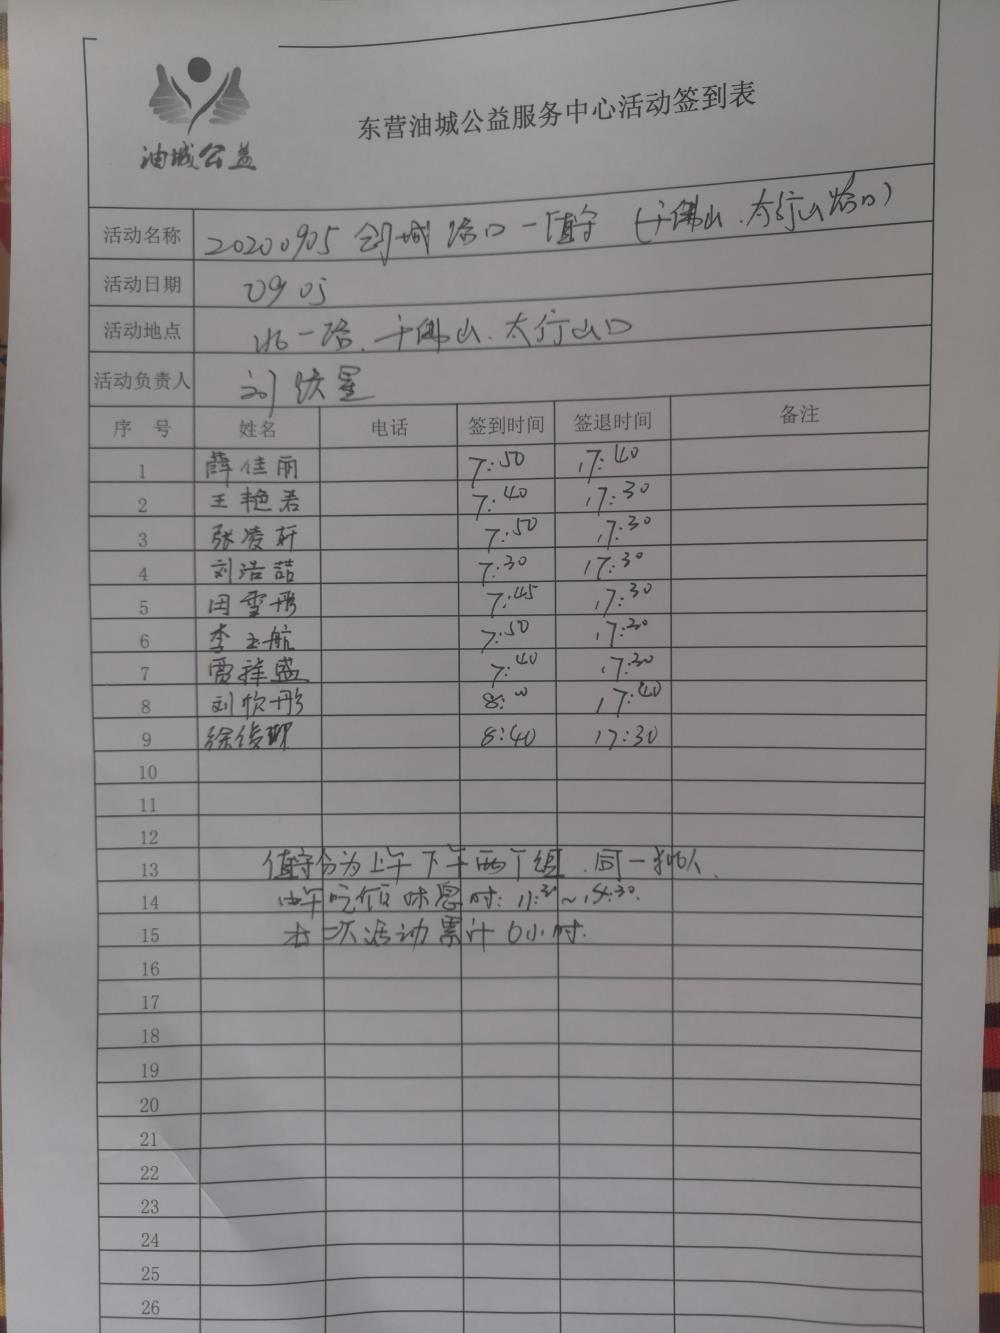 油城公益
东营油城公益服务中心活动签到表
活动名称 20200905 创城路口一值守（千佛山、太行山路口）
活动日期 0905
活动地点 北一路、千佛山、太行山口
活动负责人 刘 星
序 号 姓名 电话 签到时间 签退时间 备注
1 薛佳丽 7:50 17:40
2 王艳君 7:40 17:30
3 张凌轩 7:50 17:30
4 刘浩喆 7:30 17:30
5 田雪彤 7:45 17:30
6 李玉航 7:50 17:30
7 贾祥盛 7:40 17:30
8 刘欣彤 8:00 17:40
9 徐俊 8:40 17:30
10
11
12
13 值守分为上午下午两个组、同一批人、
14 中午吃饭休息时: 11:30~
15 本次活动累计6小时.
16
17
18
19
20
21
22
23
24
25
26